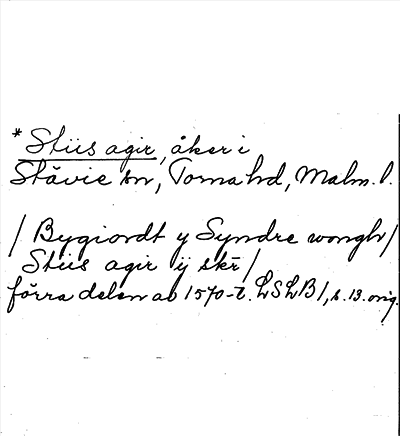 * Stiis agir, åker i
Stävie sn, Torna hd, Malm. l.
/ Bygiordt y Syndre wongh /
Stiis agir ij skr /
förra delen av 1570-t. LSLB 1, s. 13. orig.